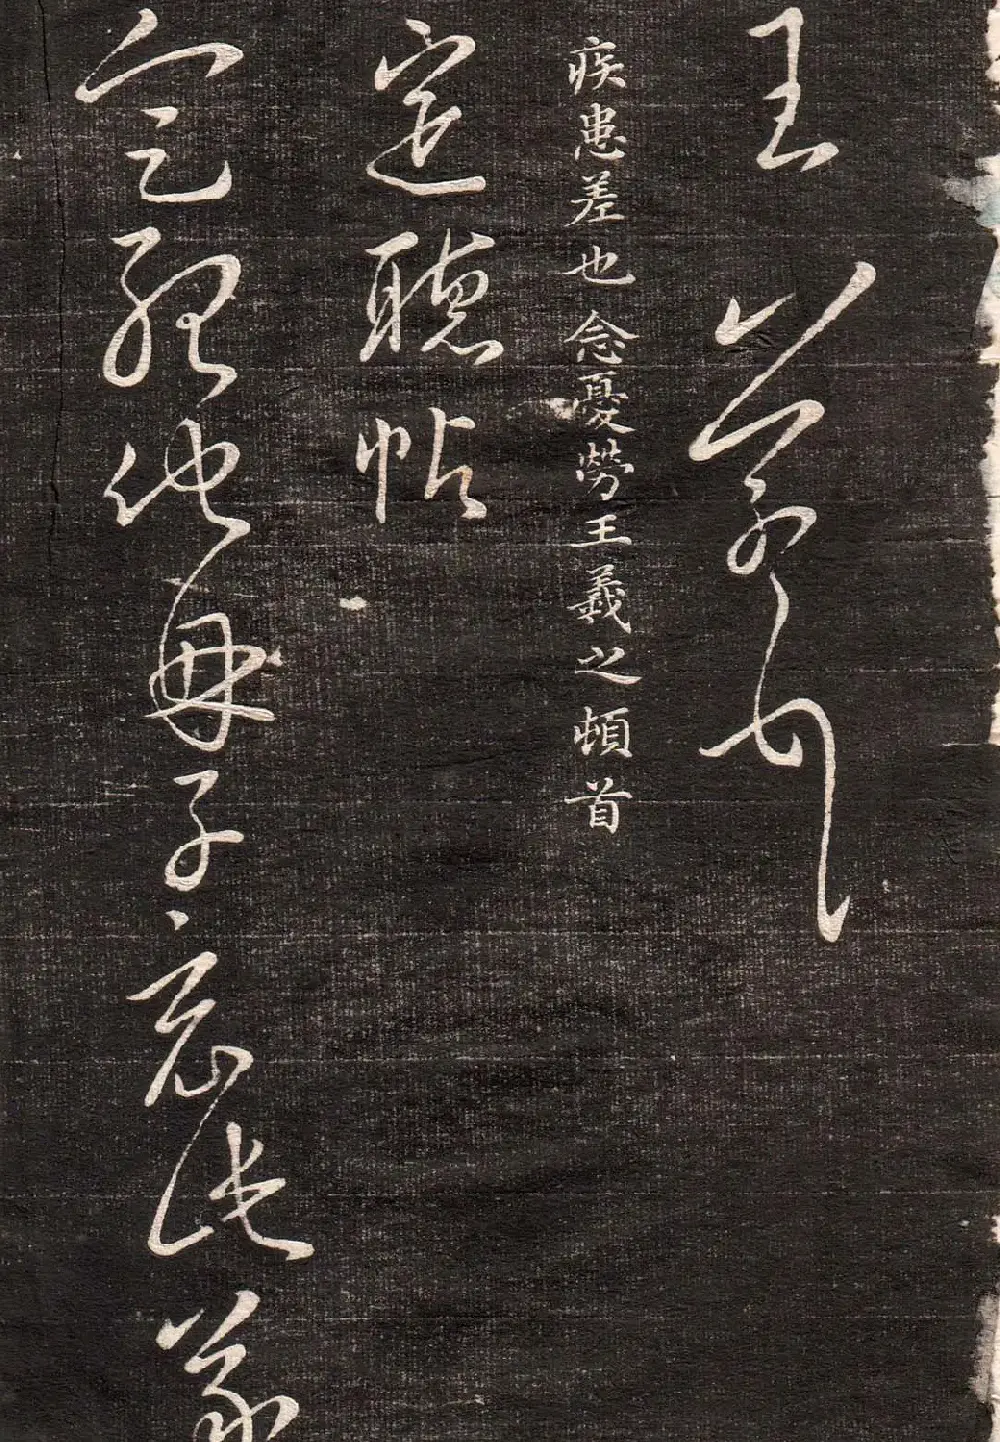 王羲之頓首
疾患差也念憂勞王羲之頓首
定聽帖
定聽他母子哀